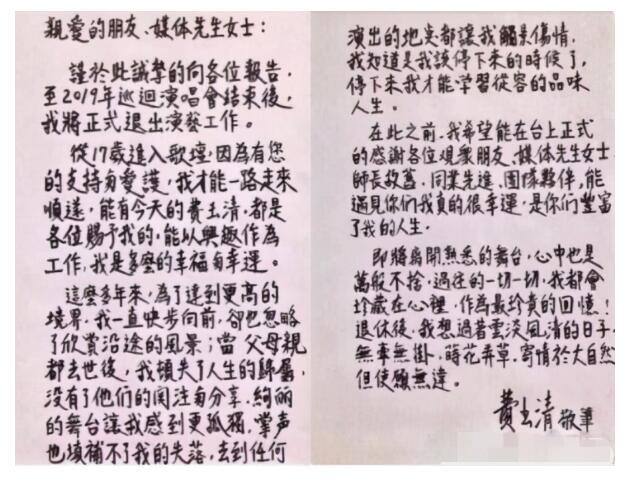 親愛的朋友、媒体先生女士:
謹於此誠摯的向各位報告,
至2019年巡迴演唱會結束後,
我將正式退出演藝工作。
從17歲進入歌壇,因為有您
的支持与愛護,我才能一路走來
順遂,能有今天的費玉清,都是
各位賜予我的,能以興趣作為
工作,我是多麼的幸福与幸運。
這麼多年來,為了達到更高的
境界,我一直快步向前,卻也忽略
了欣賞沿途的風景;當父母親
都去世後,我頓失了人生的歸屬,
没有了他們的関注与分享,絢麗
的舞台讓我感到更孤獨,掌声
也填補不了我的失落,去到任何
演出的地点都讓我觸景傷情,
我知道是我該停下來的時候了,
停下來我才能学習從容的品味
人生。
在此之前,我希望能在台上正式
的感謝各位覌衆朋友、媒体先生女士、
師長故舊、同業先進、團隊夥伴,能
遇見你們我真的很幸運,是你們豐富
了我的人生。
即將離開熟悉的舞台,心中也是
萬般不捨,過往的一切一切,我都會
珍藏在心裡,作為最珍貴的回憶!
退休後,我想過著雲淡風清的日子,
無事無掛、蒔花弄草、寄情於大自然
但使願無違。
費玉清 敬筆